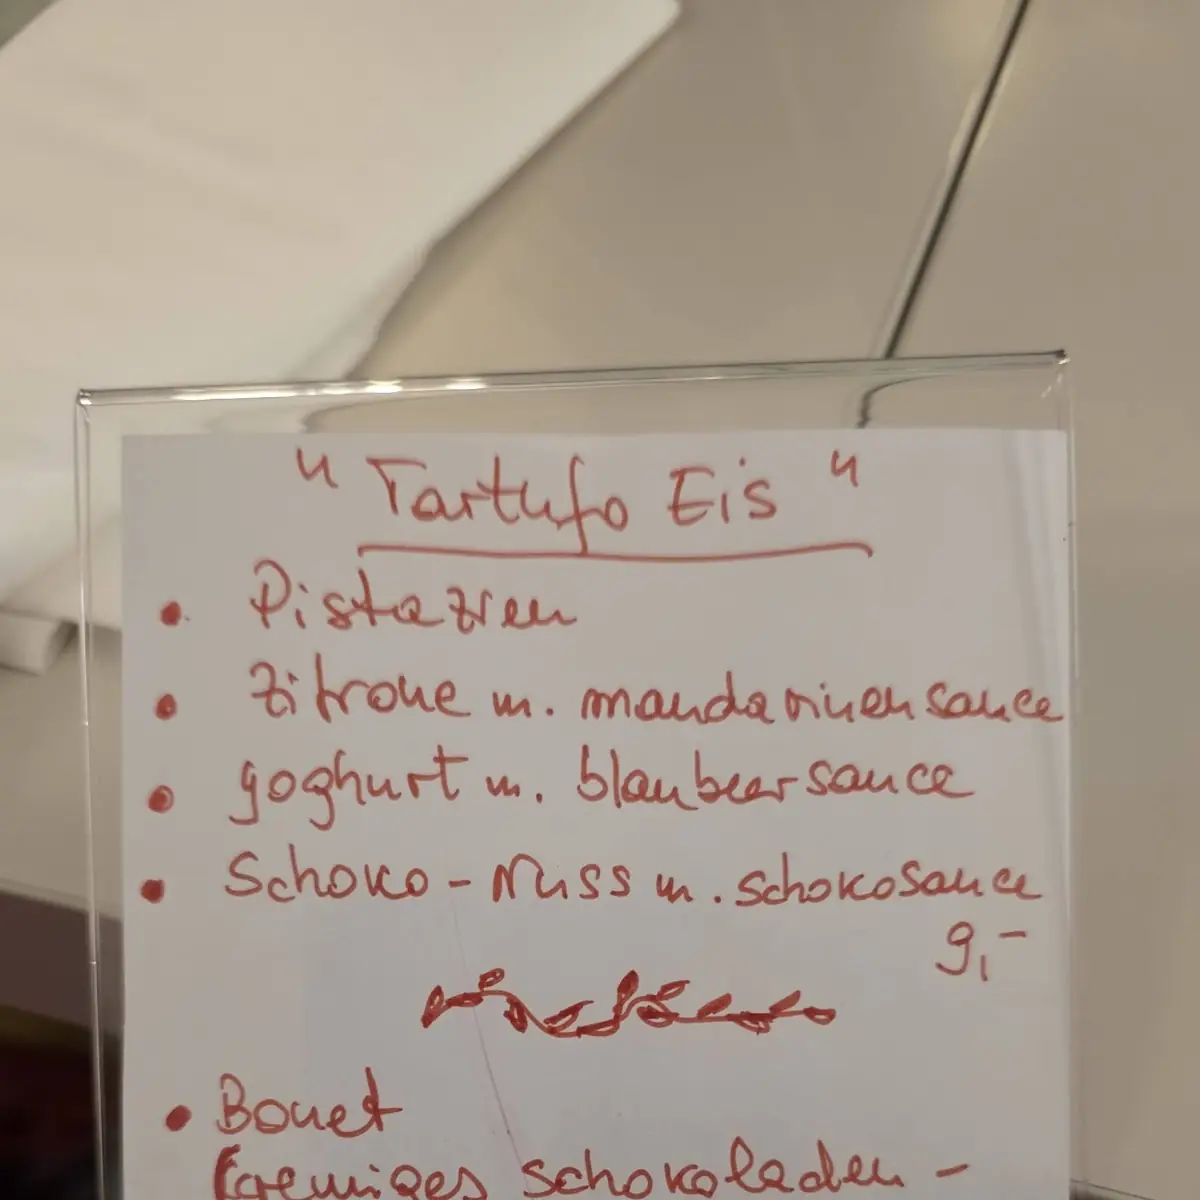 "Tartufo Eis"
• Pistazien
• Zitrone m. mandarinensauce
• Joghurt m. blaubeersauce
• Schoko-Nuss m. schokosauce
9,-
• Bonet
(cremiges schokoladen-